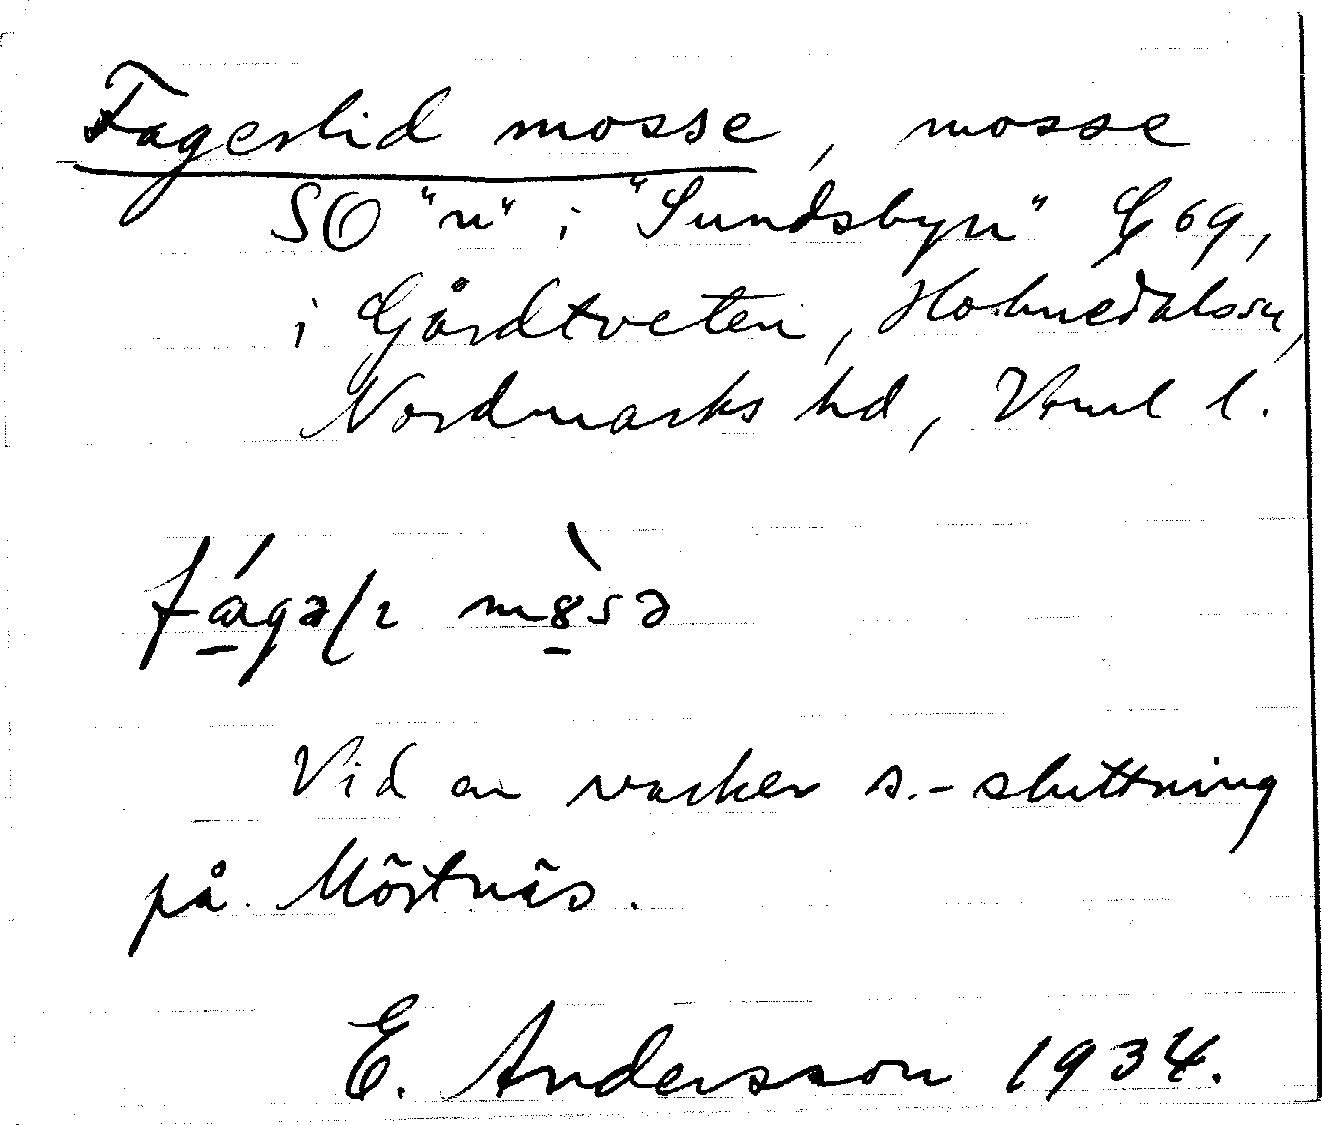 Fagerlid mosse, mosse
SO "n" i "Sundsbyn" G 69,
i Gårdtveten, Holmedals sn,
Nordmarks hd, Vrml l.
fága mosə
Vid en vacker s.-sluttning
på Mörtnäs.
E. Andersson 1934.